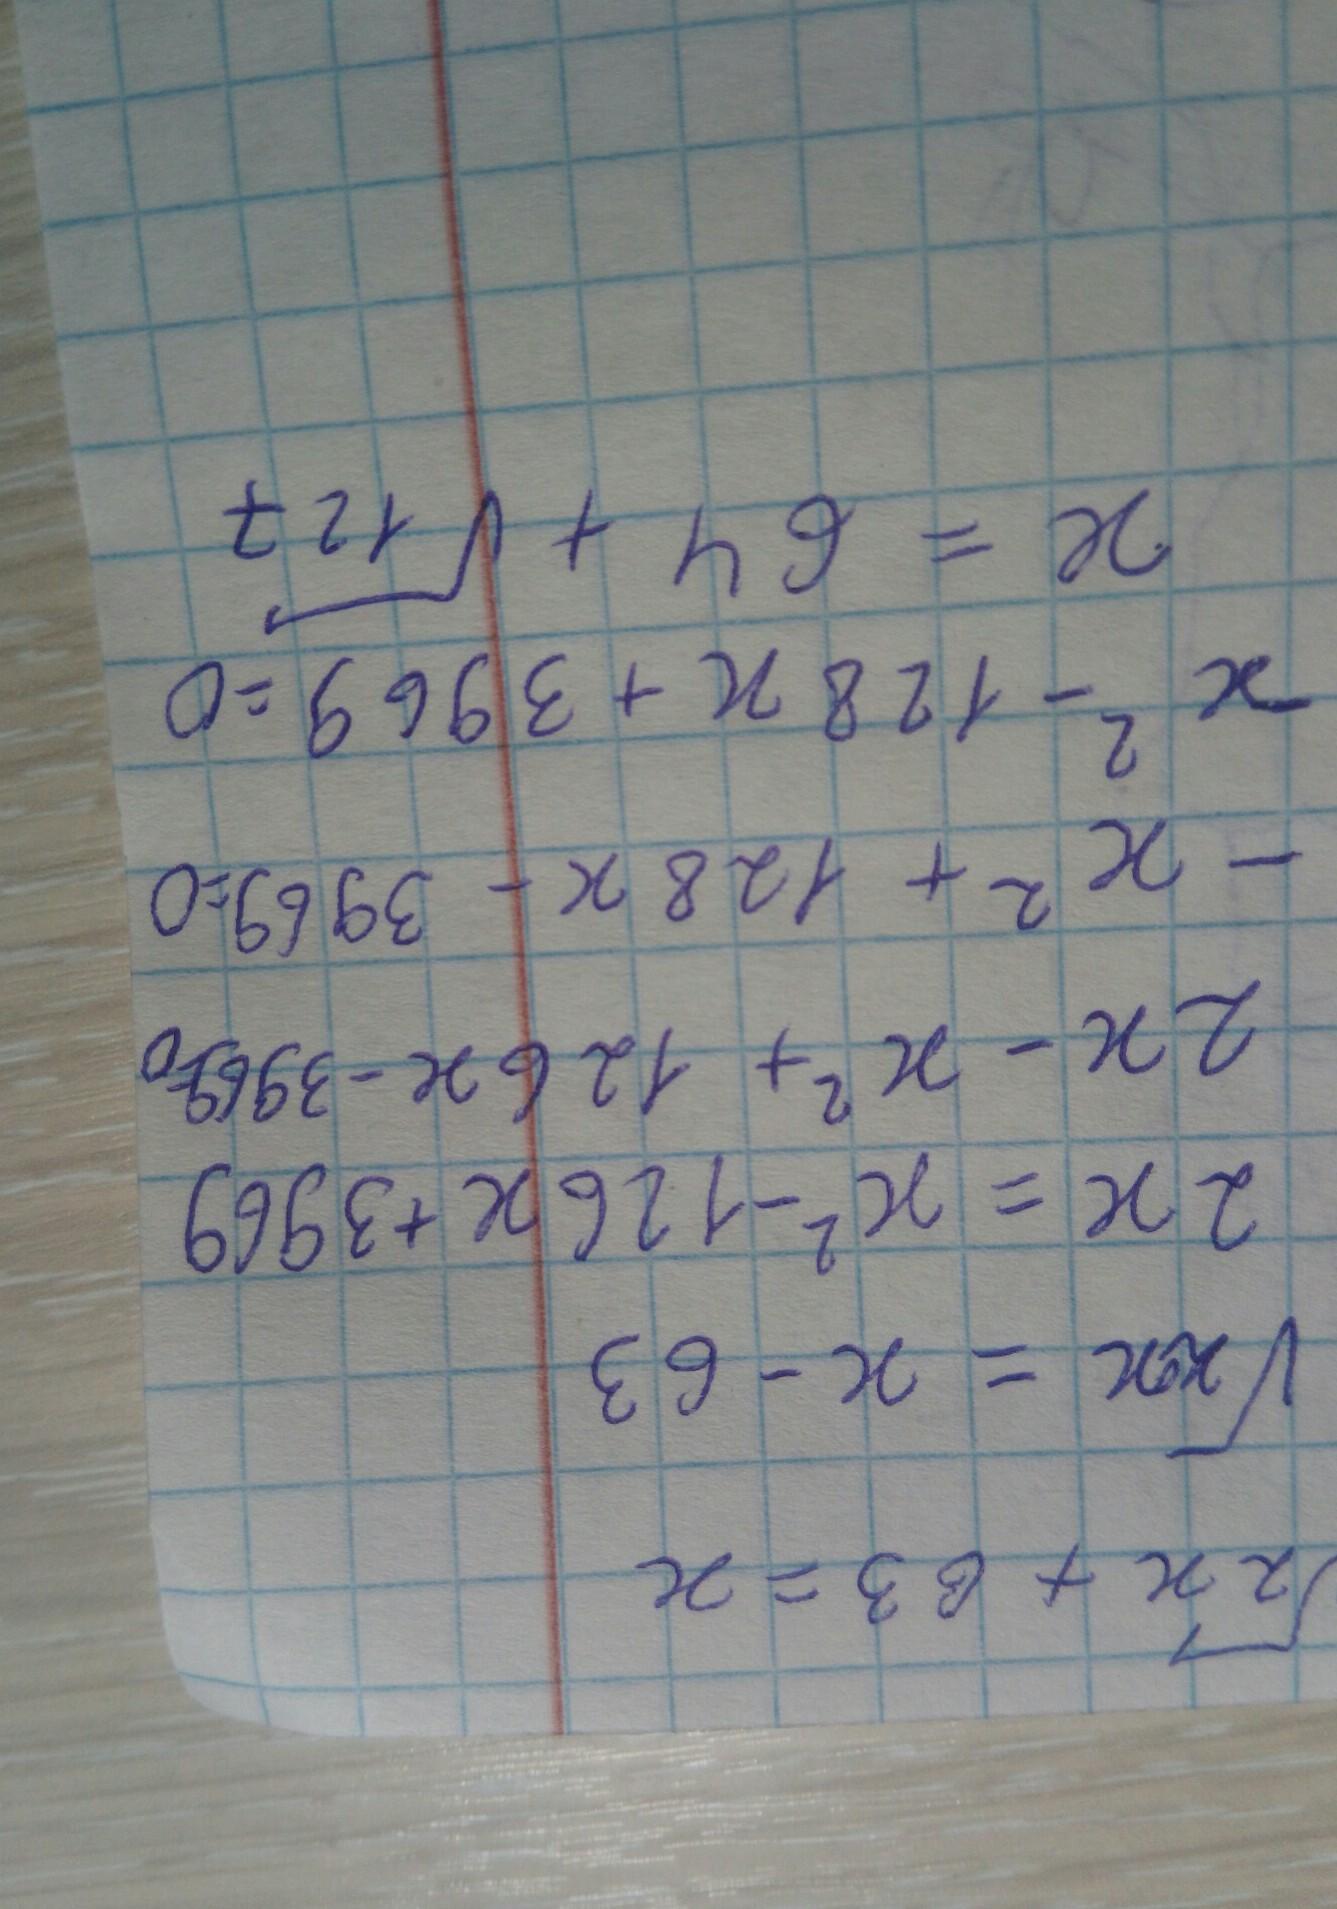 √2x + 63 = x
√2x = x - 63
2x = x² - 126x + 3969
2x - x² + 126x - 3969 = 0
- x² + 128x - 3969 = 0
x² - 128x + 3969 = 0
x = 64 + √127